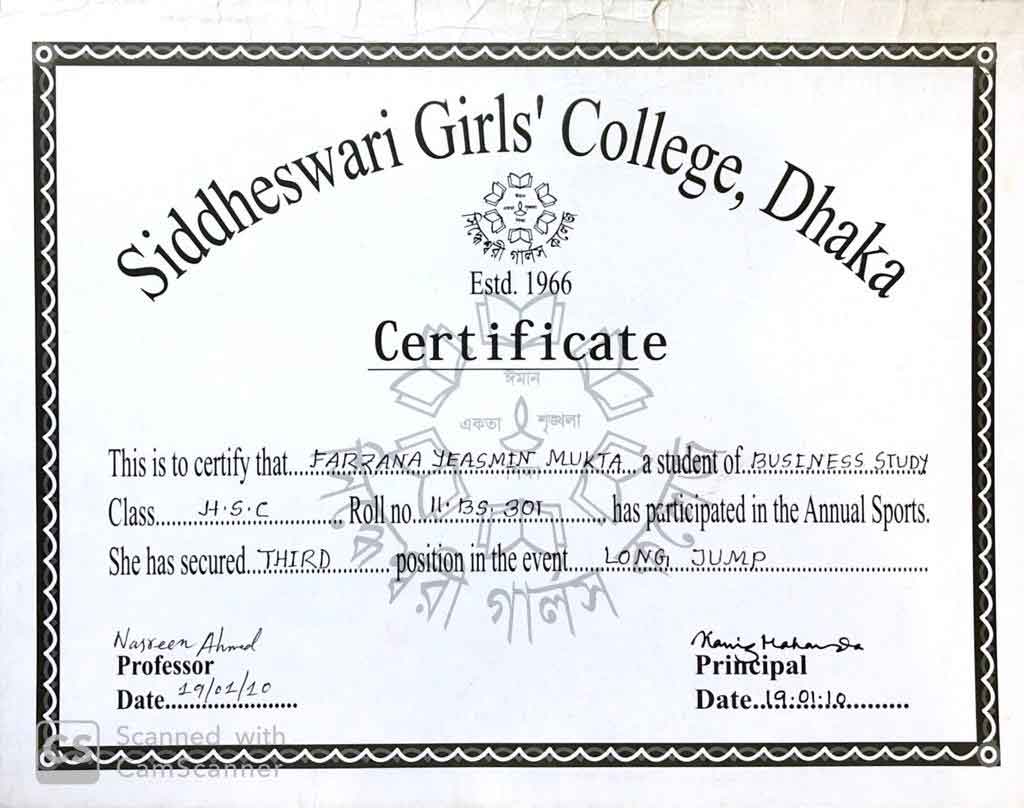 Siddheswari Girls' College, Dhaka
ঈমান
একতা শৃঙ্খলা
শিক্ষা
সিদ্ধেশ্বরী গার্লস কলেজ
Estd. 1966
Certificate
ঈমান
একতা শৃঙ্খলা
This is to certify that...FARZANA YEASMIN MUKTA...a student of.BUSINESS STUDY
Class......H.S.C......Roll no..11.BS.301......has participated in the Annual Sports.
She has secured..THIRD.......position in the event.....LONG JUMP..................
গার্লস
Nasreen Ahmed
Professor
Principal
Date..19/01/10......
Date..19.01.10..........
CS Scanned with
CamScanner